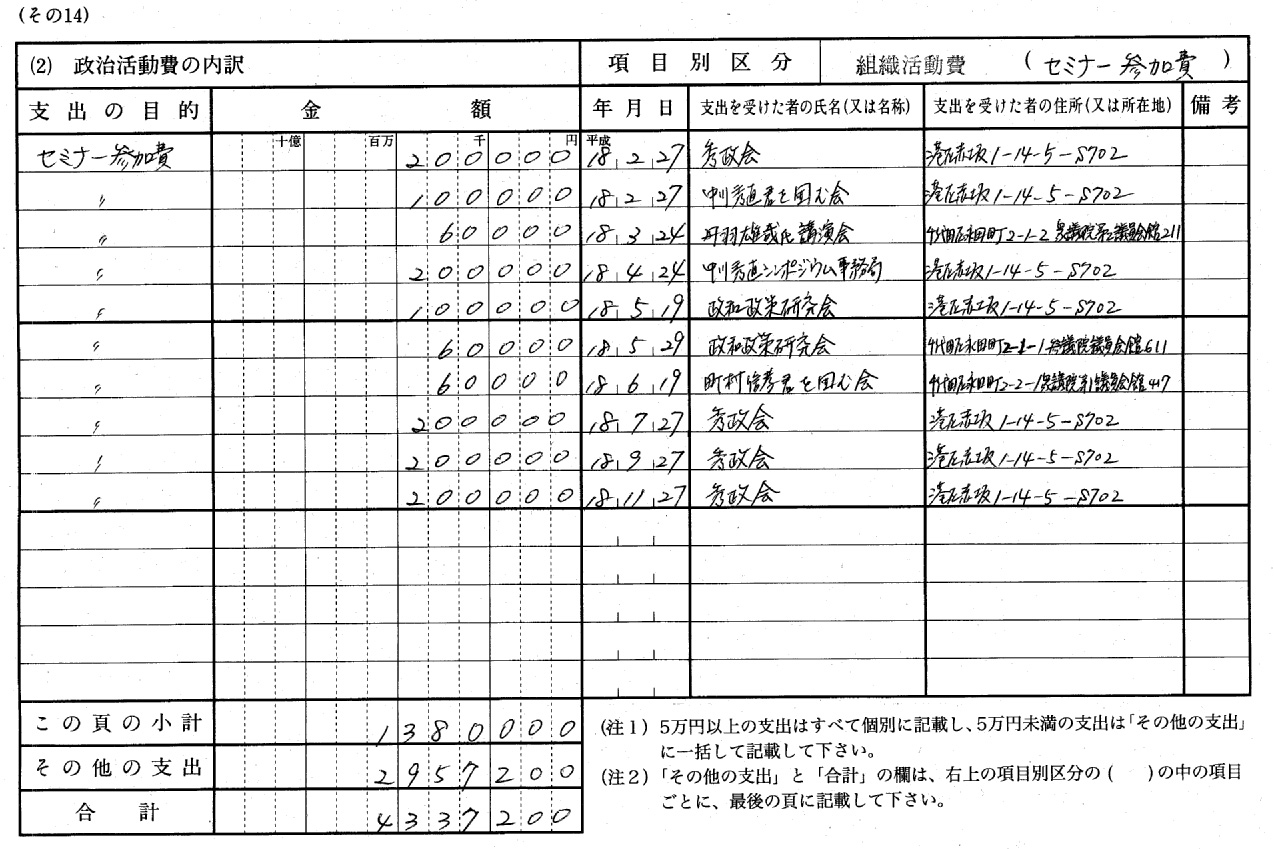 (その14)
(2) 政治活動費の内訳 項目別区分 組織活動費 (セミナー参加費)
支出の目的 金額 年月日 支出を受けた者の氏名(又は名称) 支出を受けた者の住所(又は所在地) 備考
十億 百万 千 円 平成
セミナー参加費 200000 18.2.27 秀政会 港区赤坂1-14-5-S702
〃 100000 18.2.27 中川秀直君を囲む会 港区赤坂1-14-5-S702
〃 60000 18.3.24 丹羽雄哉氏講演会 千代田区永田町2-1-2 衆議院第二議員会館211
〃 200000 18.4.24 中川秀直シンポジウム事務局 港区赤坂1-14-5-S702
〃 100000 18.5.19 政和政策研究会 港区赤坂1-14-5-S702
〃 60000 18.5.29 政和政策研究会 千代田区永田町2-1-1 参議院議員会館611
〃 60000 18.6.19 町村信孝君を囲む会 千代田区永田町2-2-1衆議院第1議員会館417
〃 200000 18.7.27 秀政会 港区赤坂1-14-5-S702
〃 200000 18.9.27 秀政会 港区赤坂1-14-5-S702
〃 200000 18.11.27 秀政会 港区赤坂1-14-5-S702
この頁の小計 1380000
その他の支出 2957200
合計 4337200
(注1) 5万円以上の支出はすべて個別に記載し、5万円未満の支出は「その他の支出」
に一括して記載して下さい。
(注2)「その他の支出」と「合計」の欄は、右上の項目別区分の( )の中の項目
ごとに、最後の頁に記載して下さい。